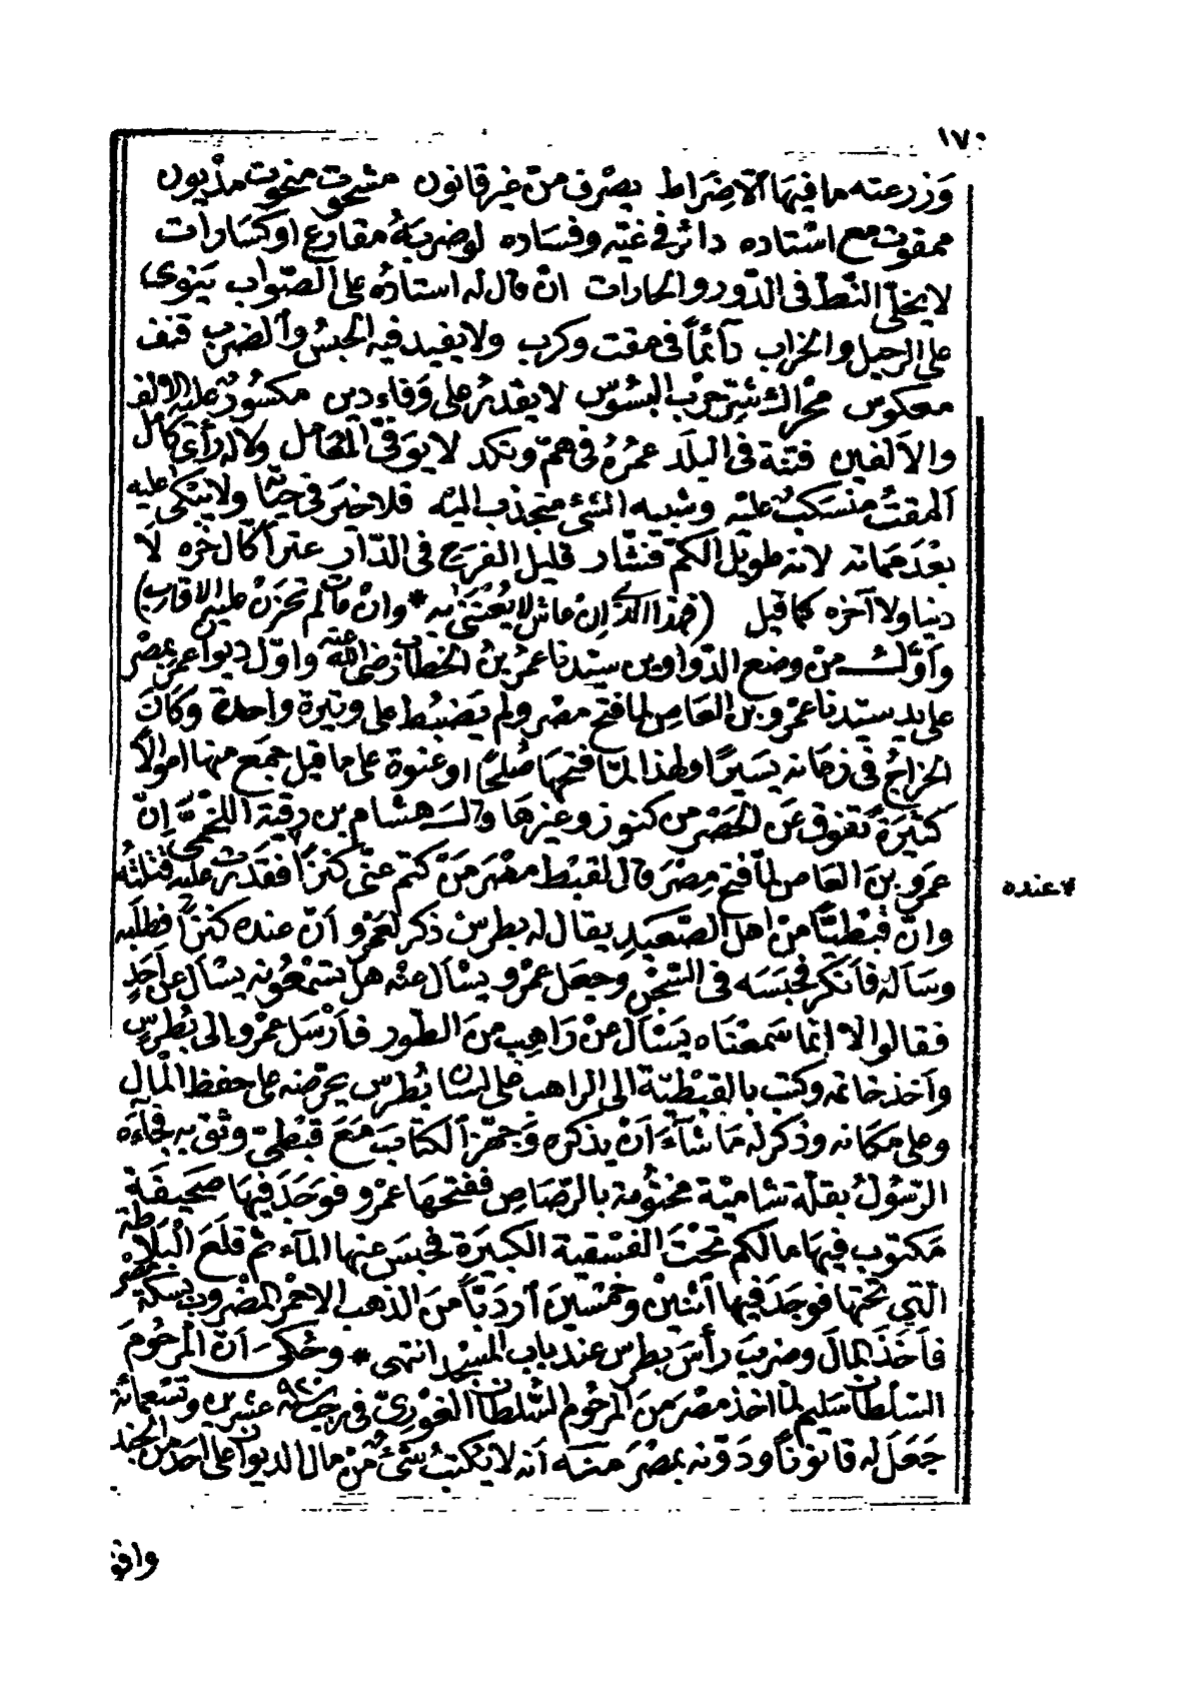 ١٧٠
وَزرعته ما فيهَا الاضِرَاط يصْرف منْ غير قانون مشحوت منحوت مذْيون
ممقوت مع اسْتاده دائر في غيّه وفسَاده لو ضربةُ مقارع او كسَارات
لا يخلّي النّطّ في الدّور والحارات انْ قال له استادُه على الصّواب يَنوى
على الرحيل والخراب دآئماً في مقت وكرب ولا يفيد فيه الحبسُ والضرب
معكوس محراك شرّ حرْب البسُوس لا يقدرُ على وَفاء دين مكسُورٌ عليه الالف
والألفين فتنة في البلَد عمرُه في همّ ونكد لا يوَفّي ولا له رأى كامل
المقتُ منسَكبٌ عليْه وشبيه الشئ منجذب اليْه فلا خيرَ في حيّا ولا يبْكى عليه
بعْدَ مماته لانه طويل الكمّ قليل الفرَح في الدّار لَا
دنيا ولا آخره كما قيل (فهذا الّذي إنْ عاش لا يُعْتنَى به * وانْ مات لم تحزَنْ عليْه الاقارب)
وَأوّل مَنْ وضع الدّواوين سيّدنا عمرُ بنُ الخطاب رَضي اللّه عنه واوّل ديوان عمر بمصْر
على يد سيّدنا عمْرو بن العَاص لما فتح مصْر ولم يَضبُط على وتيرة واحدة وَكانَ
الخراجُ في زمَانه يسَيرًا ولهذا لمّا فتحهَا صُلحًا او عنوة على ما قيل جمَع منها اموالاً
كثيرَةً تفوق عَن الحَصْر من كنوز وغيرهَا وقالَ هشام بن رقيّة اللخْميّ إنّ
عمَرو بنَ العَاص لمّا فتح مِصْرَ قال لقبْط مصْرَ مَنْ كتَم عنّي كنزًا فقدَرْتُ عليْه قتلتُه
وانّ قبْطيّاً منْ اهل الصّعيدِ يقال له بطرس ذكر لعَمْرو أنّ عنده كنزاً فطلَبه
وسَأله فأنكَر فحبَسَه في السّجْن وجعَل عمْرو يسْأل عنْه هلْ تسْمعُونه يسْأل عن أحَدٍ
فقالوا لا انّما سَمعْنَاه يَسْأل عنْ رَاهِب منَ الطّور فأرْسَل عمْرو الى بُطرس
وأخذ خاتمه وكتب بالقبْطيّة الى الراهب على لسَان بُطرس يحرّضه على حفظ المَال
وعلى مكَانه وذكر له مَا شآءَ أنْ يذكره وَجهّز الكتابَ مَعَ قبْطىّ وثق به فجآءَه
الرّسُولُ بقلّة شاميّة مختُومة بالرّصَاص ففتحهَا عمْرو فوَجَدَ فيهَا صَحيفَة
مَكتوب فيهَا مالكم تحْتَ الفسْقية الكبيرَة فحبسَ عنها المآء ثم قلَعَ البْلَاطة
الّتي تحْتها فوجَدَ فيها أثنيْن وَخمْسين أردَبّاً منَ الذهب الاحْمر المضْروب بسكّة مصْر
فأخَذَ المالَ وضربَ رأسَ بطرس عند باب المسْجد انتهى * وحُكىَ أنّ المرْحُومَ
السّلطان سَليم لمّا اخذ مصْرَ منَ المرْحُوم السّلطان الغوْريّ في رجب سنة ٩٢٠ عشرين وتسْعمائة
جَعَل له قانوناً ودَوّنه بمصْرَ منْه أنه لا يكتبُ شئٌ منْ مال الديوان على أحد من الجند
٧ عنده
وافق